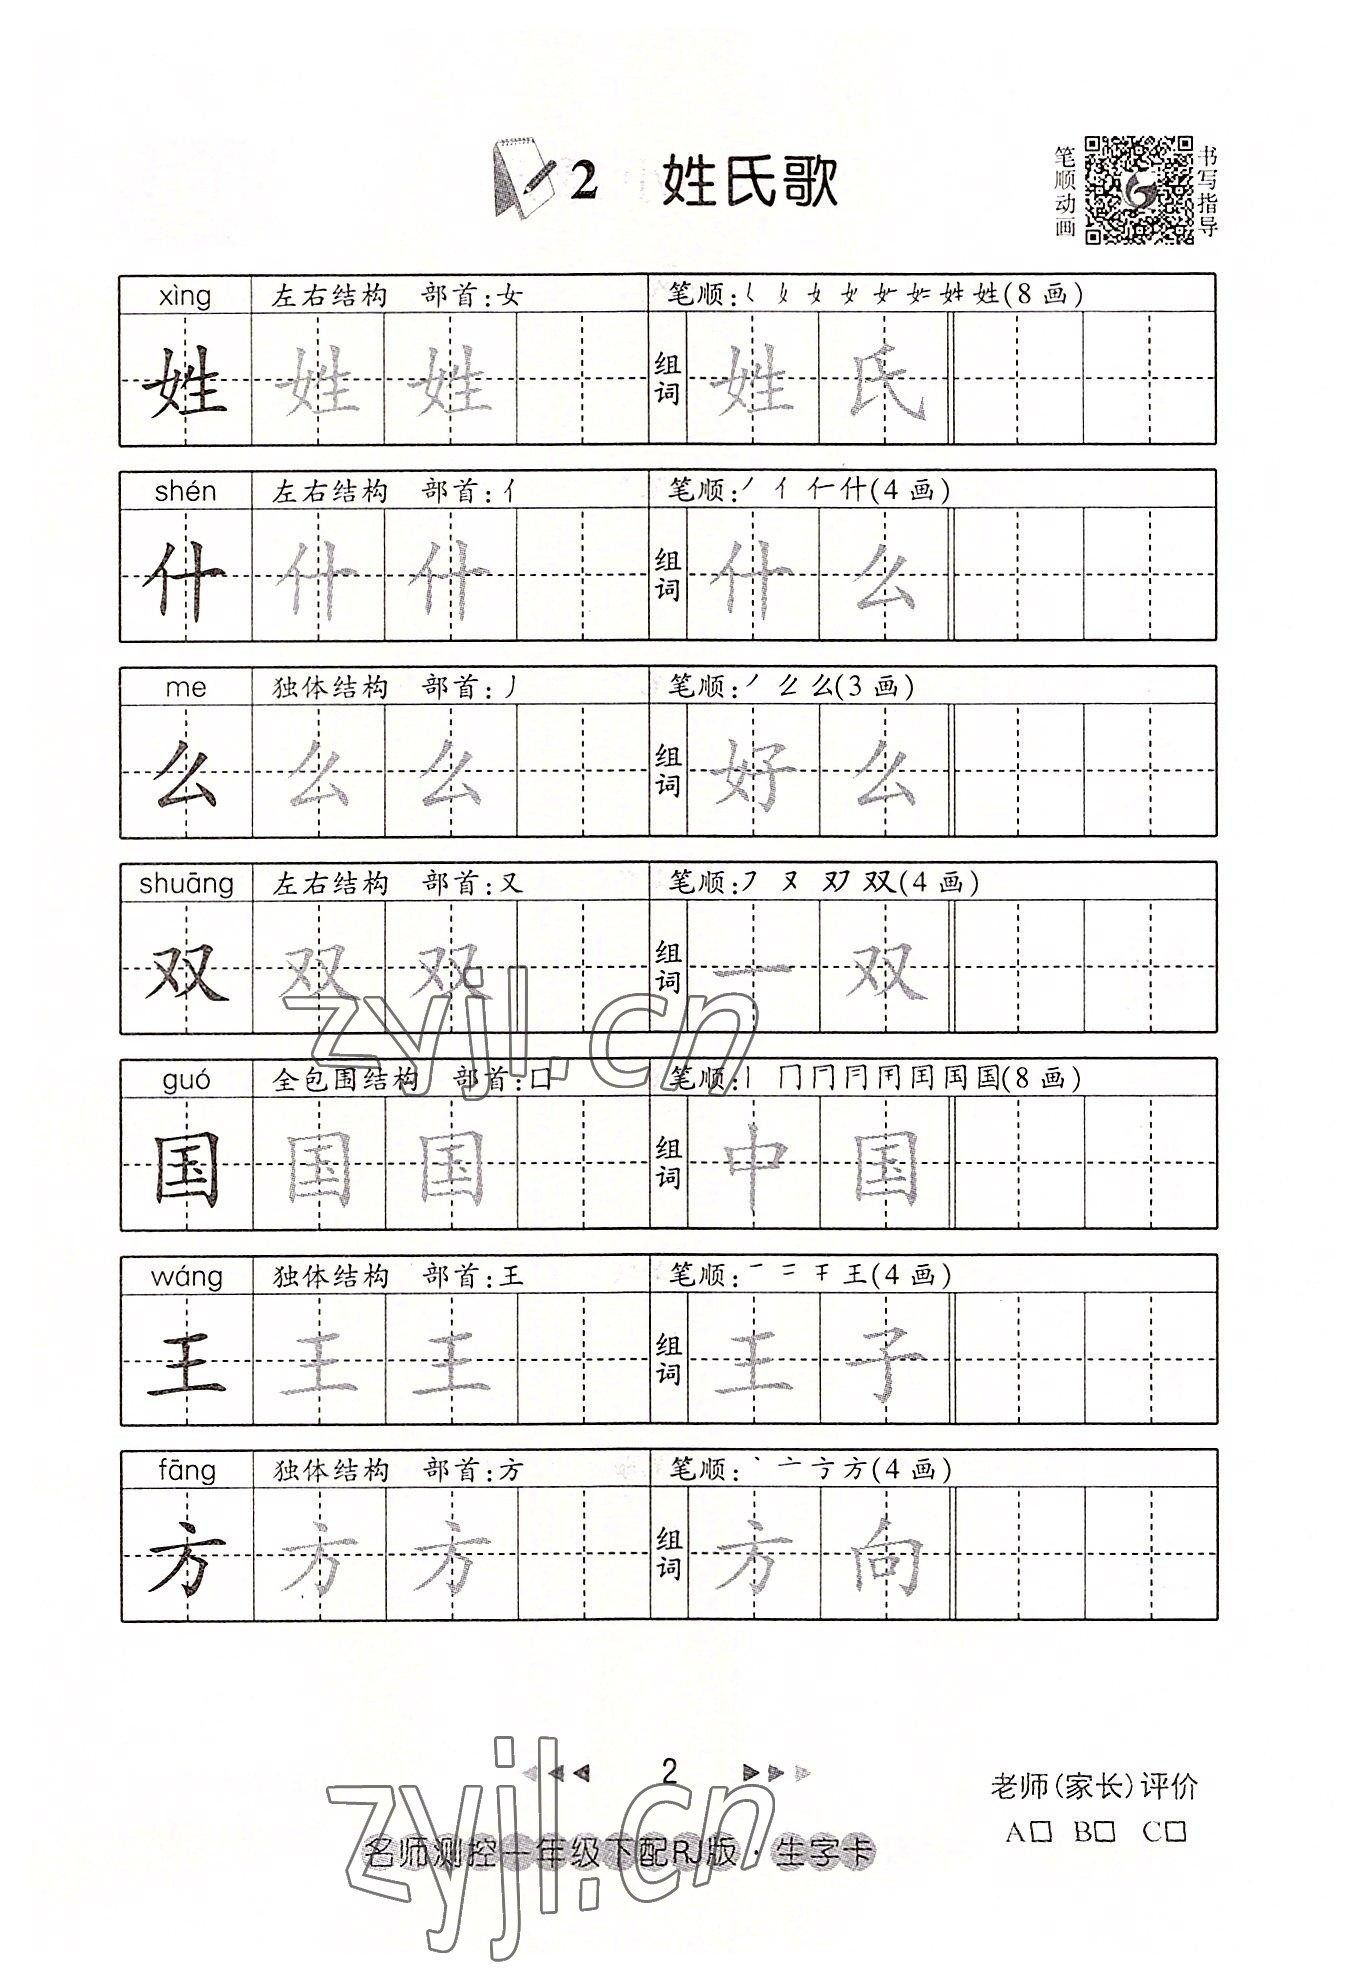 2 姓氏歌
笔顺动画
书写指导
xìng 左右结构 部首:女 笔顺: 𡿨 女 女 女 姓(8画)
姓 姓 姓 组词 姓 氏
shén 左右结构 部首:亻 笔顺:㇒ 亻 仁 什(4画)
什 什 什 组词 什 么
me 独体结构 部首:丿 笔顺:㇒ 么(3画)
么 么 么 组词 好 么
shuāng 左右结构 部首:又 笔顺:㇇ 又 双(4画)
双 双 双 组词 一 双
guó 全包围结构 部首:囗 笔顺:丨 冂 国(8画)
国 国 国 组词 中 国
wáng 独体结构 部首:王 笔顺:一 二 干 王(4画)
王 王 王 组词 王 子
fāng 独体结构 部首:方 笔顺:丶 亠 方(4画)
方 方 方 组词 方 向
zyjl.cn
2
老师(家长)评价
A□ B□ C□
名师测控一年级下配RJ版·生字卡
zyjl.cn